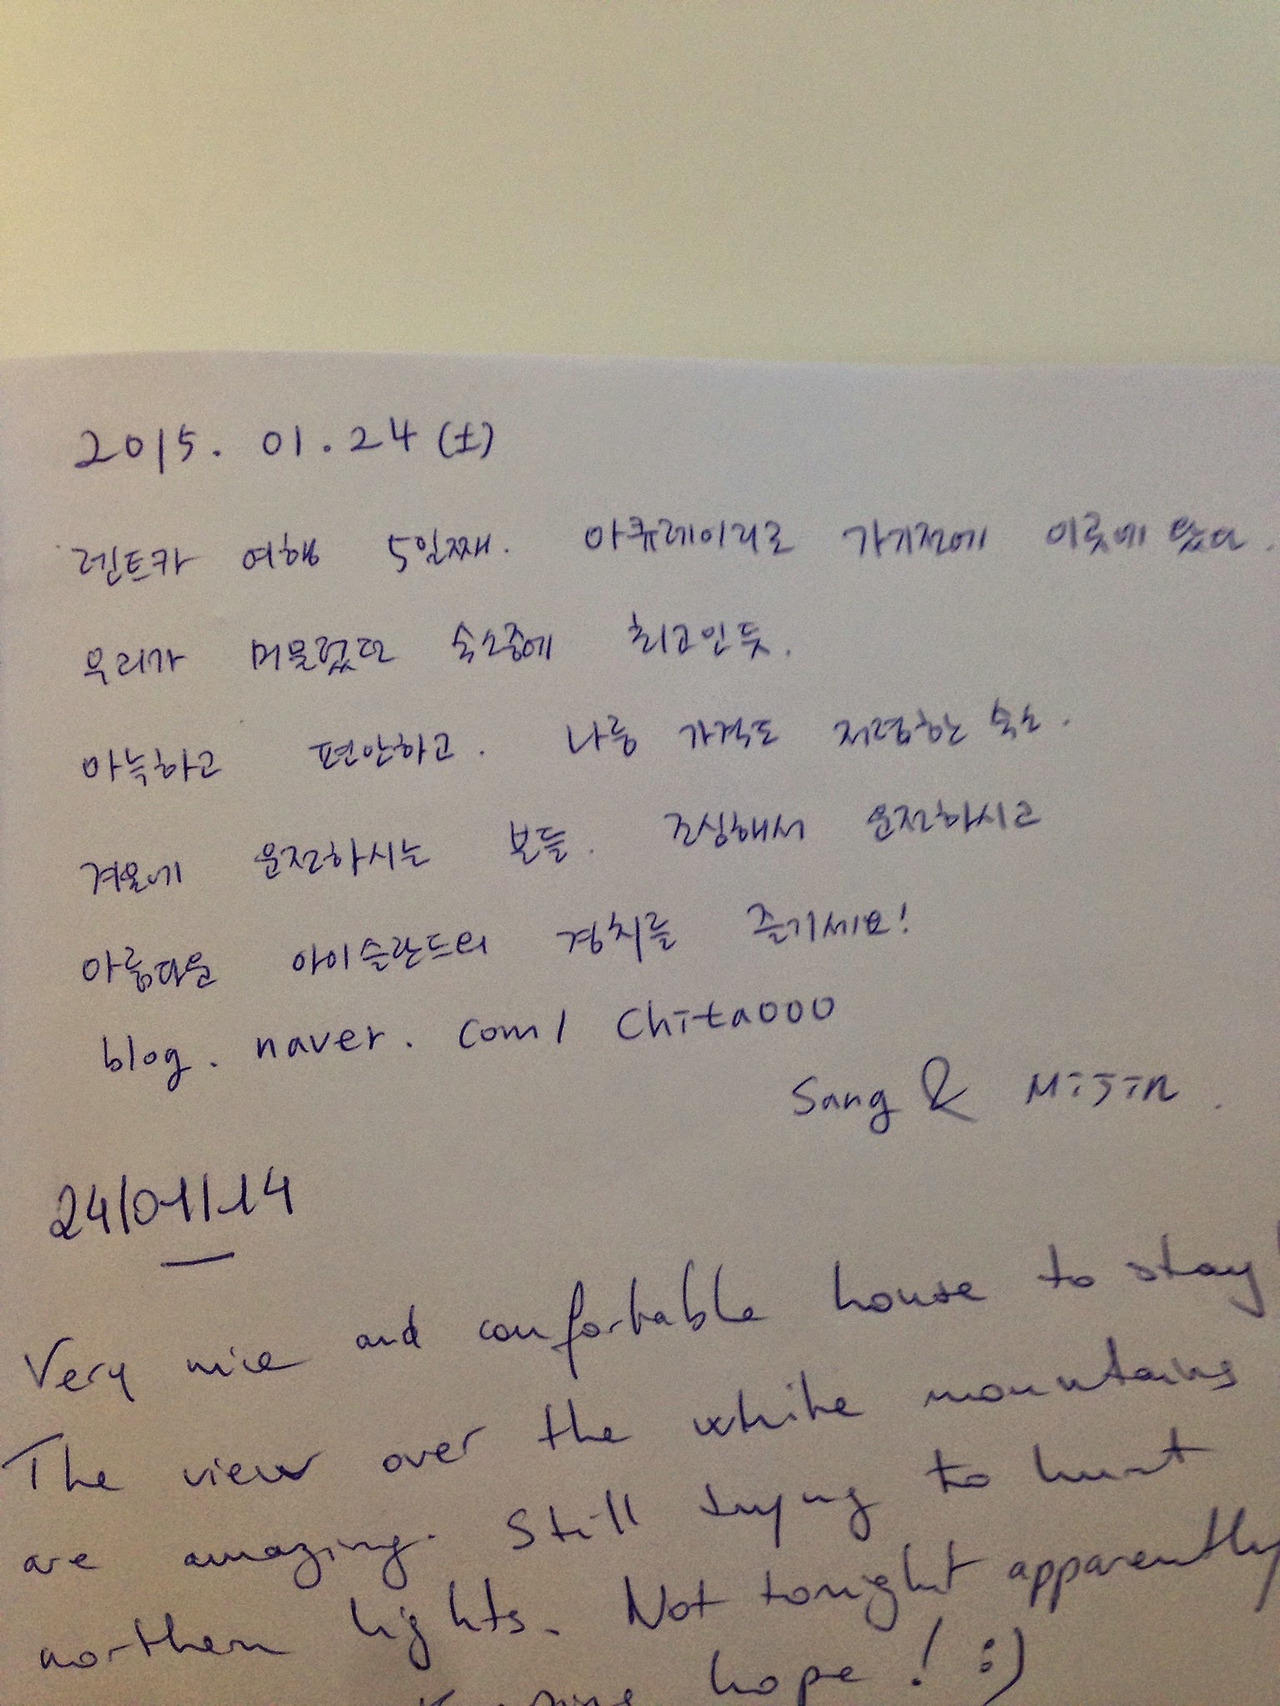 2015. 01. 24 (土)
렌트카 여행 5일째. 아큐레이리로 가기전에 이곳에 왔다.
우리가 머물렀던 숙소중에 최고인듯.
아늑하고 편안하고. 나름 가격도 저렴한 숙소.
겨울에 운전하시는 분들. 조심해서 운전하시고
아름다운 아이슬란드의 경치를 즐기세요!
blog. naver. com/ Chita000
Sang & MiJin.
24/01/14
Very nice and comfortable house to stay!
The view over the white mountains
are amazing. Still trying to hunt
northern lights. Not tonight apparently
Keeping hope! :)